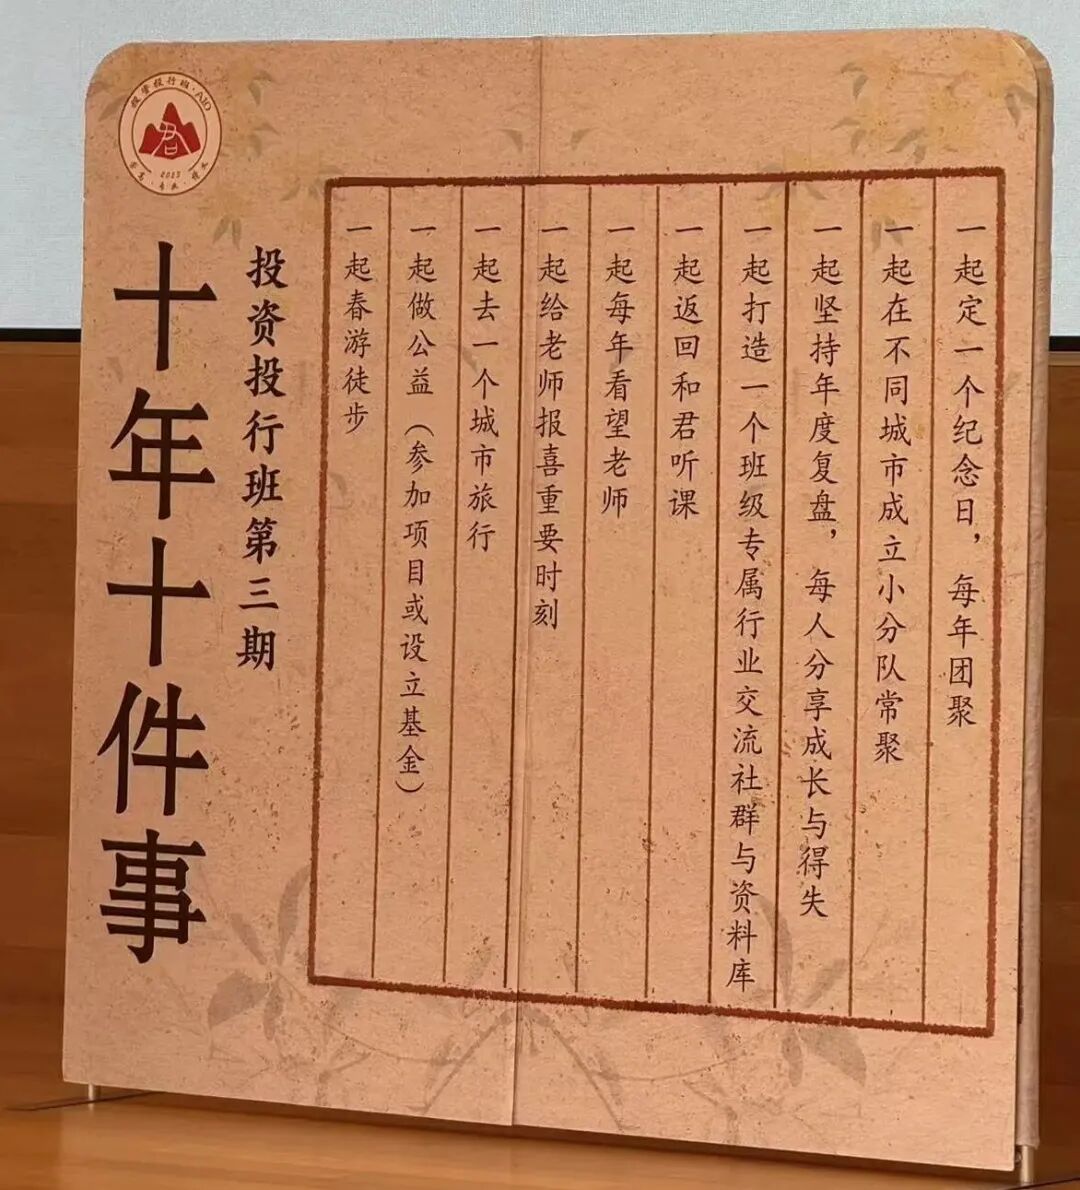 十年十件事
投资投行班第三期
一起定一个纪念日，每年团聚
一起在不同城市成立小分队常聚
一起坚持年度复盘，每人分享成长与得失
一起打造一个班级专属行业交流社群与资料库
一起返回和君听课
一起每年看望老师
一起给老师报喜重要时刻
一起去一个城市旅行
一起做公益（参加项目或设立基金）
一起春游徒步
君
2023